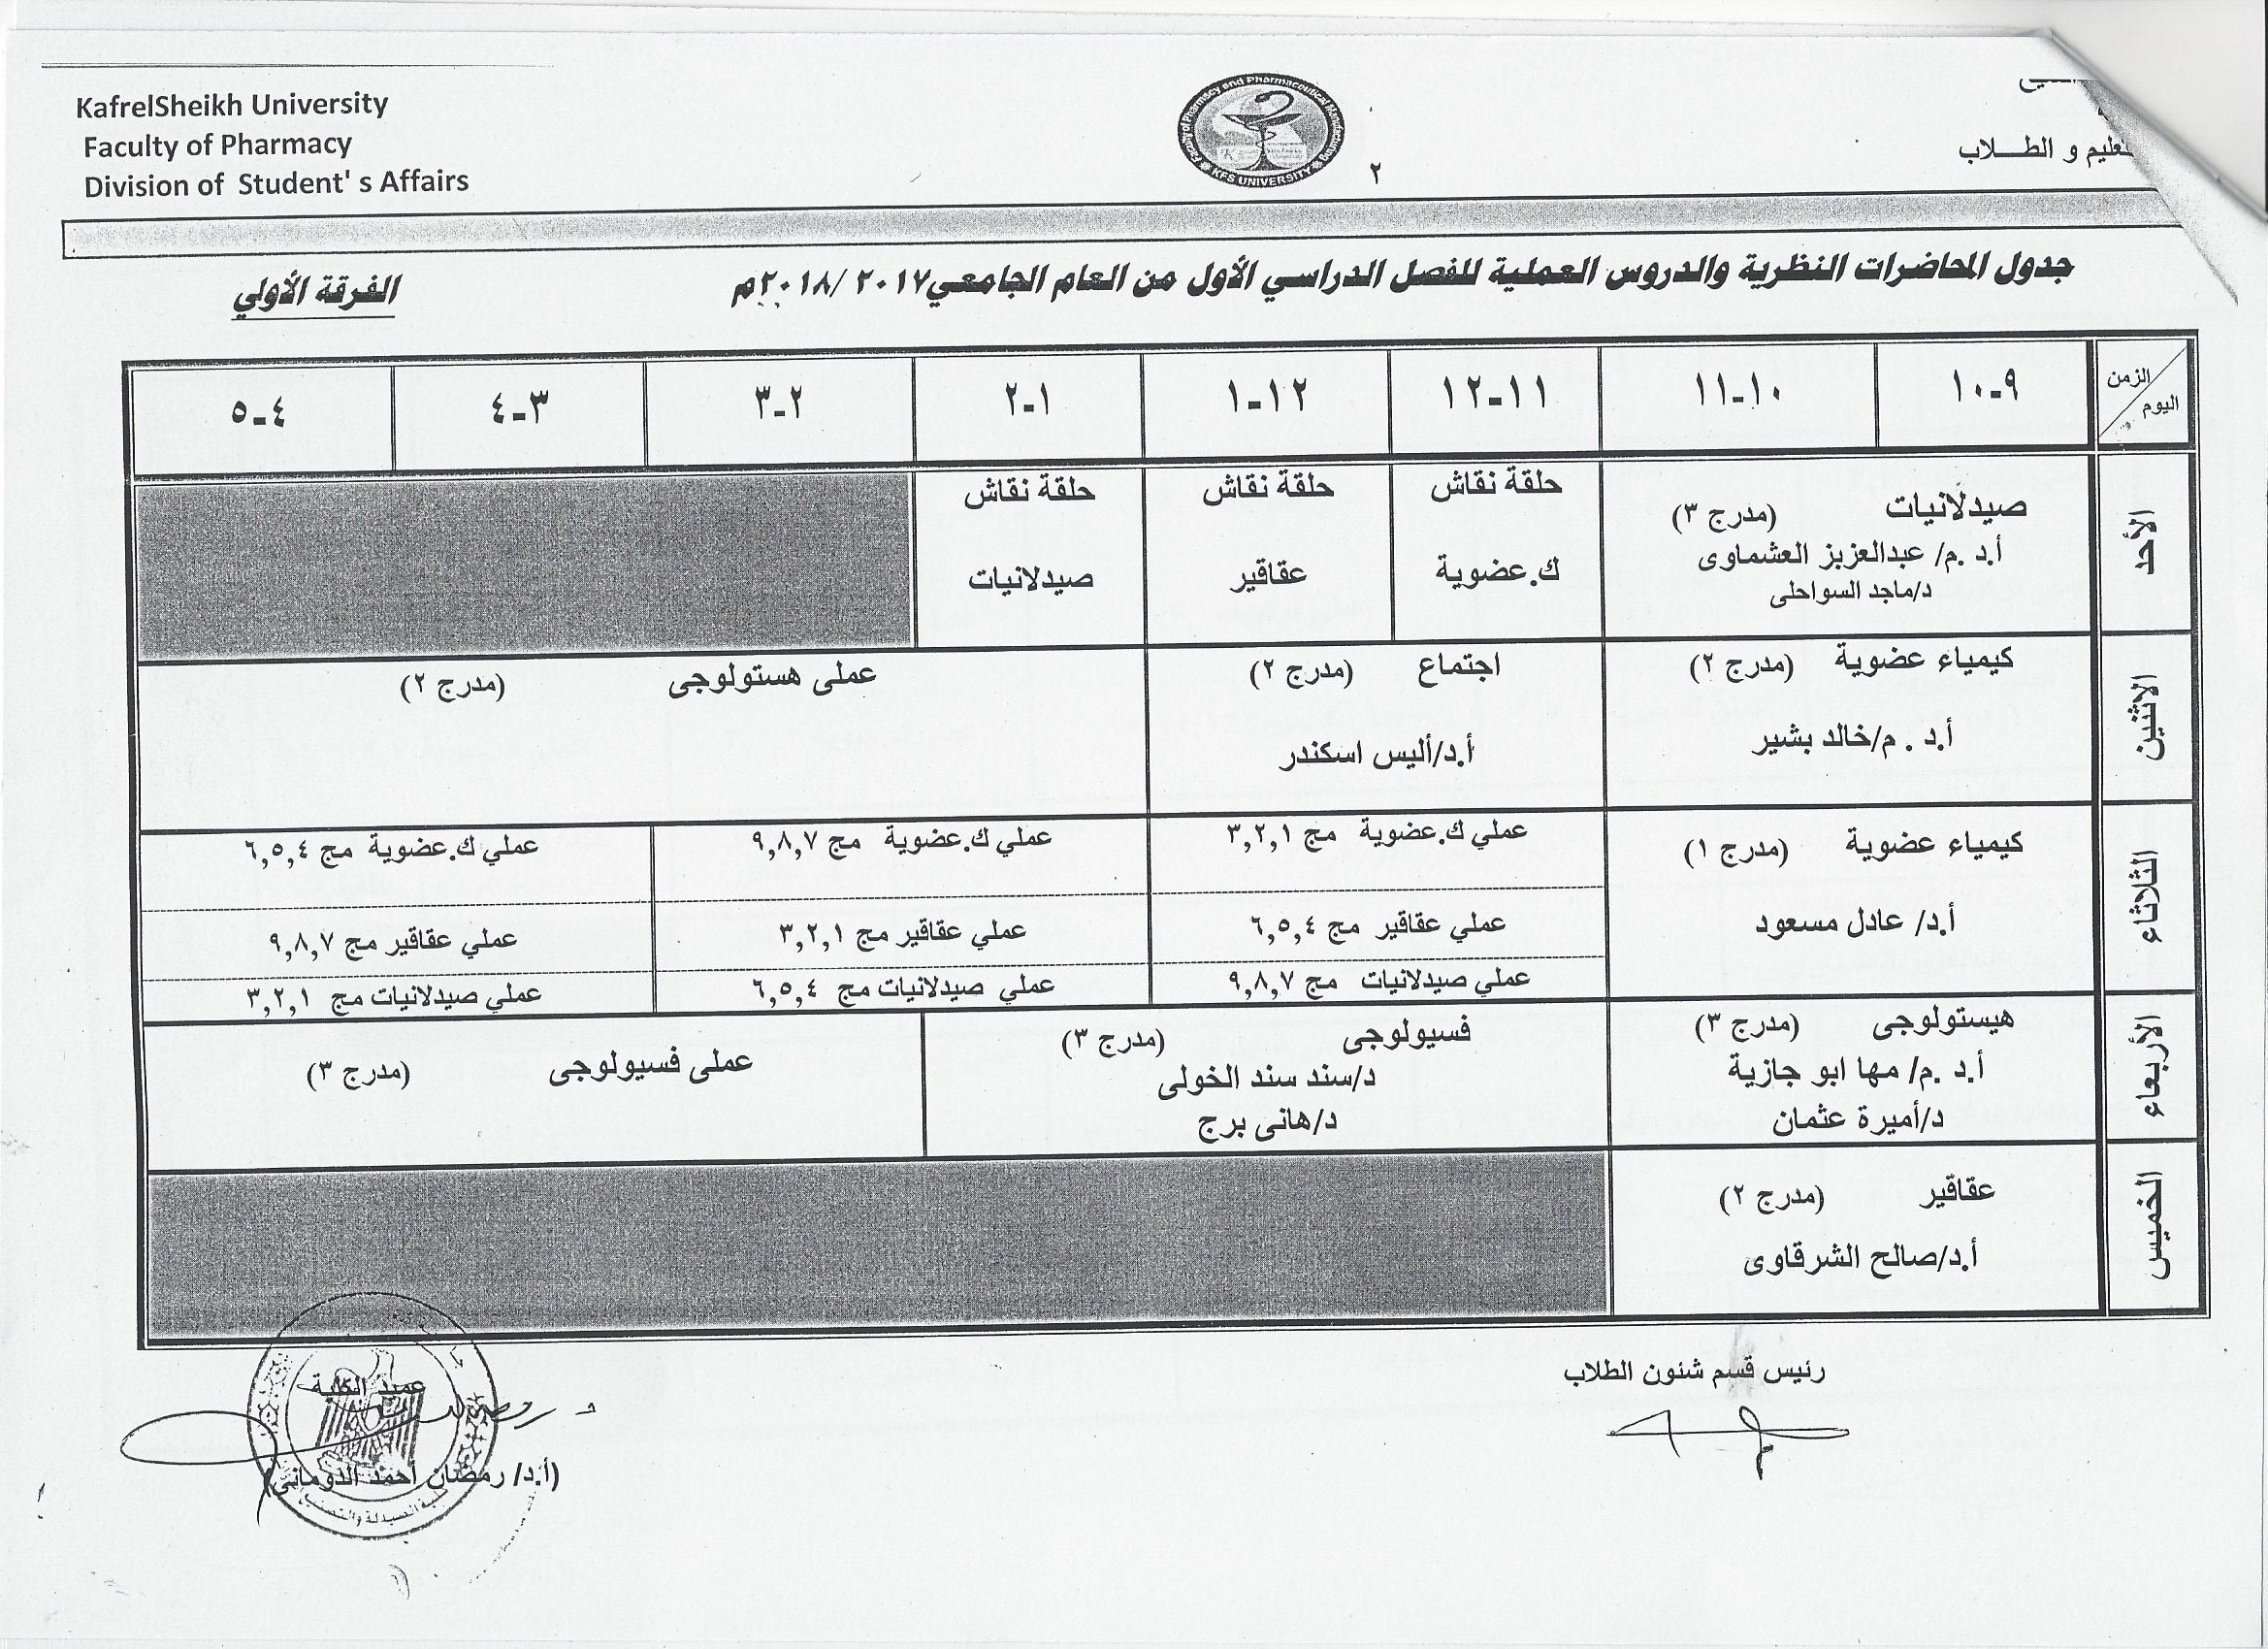 KafrelSheikh University
Faculty of Pharmacy
Division of Student' s Affairs
Faculty of Pharmacy and Pharmaceutical Manufacturing
KFS UNIVERSITY
و الطـــلاب
٢
جدول المحاضرات النظرية والدروس العملية للفصل الدراسي الأول من العام الجامعي٢٠١٧ /٢٠١٨م
الفرقة الأولي
الزمن
اليوم
٩-١٠
١٠-١١
١١-١٢
١٢-١
١-٢
٢-٣
٣-٤
٤-٥
الأحد
صيدلانيات (مدرج ٣)
أ.د .م/ عبدالعزيز العشماوى
د/ماجد السواحلى
حلقة نقاش
ك.عضوية
حلقة نقاش
عقاقير
حلقة نقاش
صيدلانيات
الاثنين
كيمياء عضوية (مدرج ٢)
أ.د . م/خالد بشير
اجتماع (مدرج ٢)
أ.د/أليس اسكندر
عملى هستولوجى (مدرج ٢)
الثلاثاء
كيمياء عضوية (مدرج ١)
أ.د/ عادل مسعود
عملي ك.عضوية مج ٣,٢,١
عملي عقاقير مج ٦,٥,٤
عملي صيدلانيات مج ٩,٨,٧
عملي ك.عضوية مج ٩,٨,٧
عملي عقاقير مج ٣,٢,١
عملي صيدلانيات مج ٦,٥,٤
عملي ك.عضوية مج ٦,٥,٤
عملي عقاقير مج ٩,٨,٧
عملي صيدلانيات مج ٣,٢,١
الأربعاء
هيستولوجى (مدرج ٣)
أ.د .م/ مها ابو جازية
د/أميرة عثمان
فسيولوجى (مدرج ٣)
د/سند سند الخولى
د/هانى برج
عملى فسيولوجى (مدرج ٣)
الخميس
عقاقير (مدرج ٢)
أ.د/صالح الشرقاوى
رئيس قسم شئون الطلاب
عميد الكلية
(أ.د/ رمضان أحمد الدومانى)